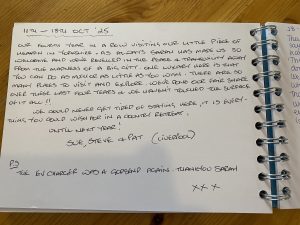 11TH - 18TH OCT '25
OUR FOURTH YEAR IN A ROW VISITING OUR LITTLE PIECE OF
HEAVEN IN YORKSHIRE. AS ALWAYS SARAH HAS MADE US SO
WELCOME AND WE'VE RELISHED IN THE PEACE & TRANQUILITY AWAY
FROM THE MADNESS OF A BIG CITY. ONE LUXURY HERE IS THAT
YOU CAN DO AS MUCH OR LITTLE AS YOU WANT. THERE ARE SO
MANY PLACES TO VISIT AND EXPLORE. WE'VE DONE OUR FAIR SHARE
OVER THESE LAST FOUR YEARS & WE HAVEN'T TOUCHED THE SURFACE
OF IT ALL!!
WE COULD NEVER GET TIRED OF STAYING HERE, IT IS EVERY-
THING YOU COULD WISH FOR IN A COUNTRY RETREAT.
UNTIL NEXT YEAR!
SUE, STEVE & PAT (LIVERPOOL)
PS
THE EV CHARGER WAS A GODSEND AGAIN. THANKYOU SARAH
X X X